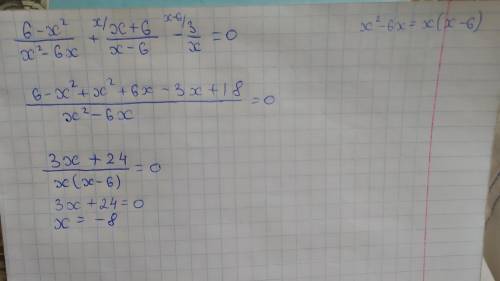 (6-x²)/(x²-6x) + x/ (x+6)/(x-6) - x-6/ 3/x = 0
x²-6x = x(x-6)
(6-x²+x²+6x-3x+18)/(x²-6x) = 0
(3x+24)/(x(x-6)) = 0
3x+24=0
x = -8